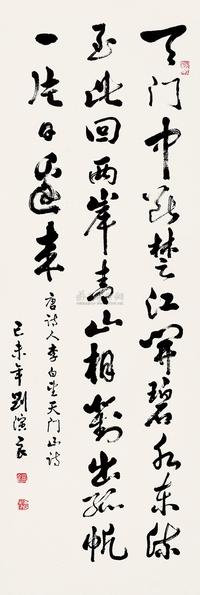 天门中断楚江开碧水东流
至此回两岸青山相对出孤帆
一片日边来
唐诗人李白望天门山诗
己未年刘演良